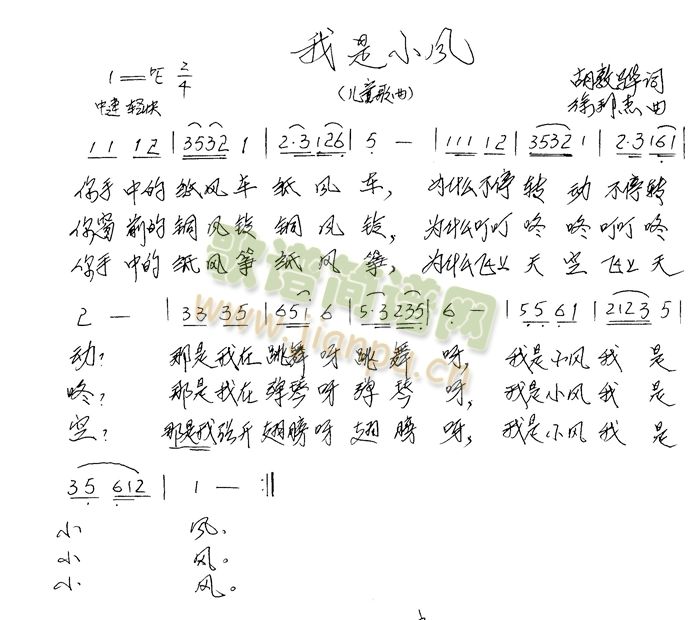 我是小风
(儿童歌曲)
1=♭E 2/4
中速 轻快
胡敦骅 词
徐邦杰 曲
11 12 | 3532 1 | 2·3 126 | 5 — | 111 12 | 3532 1 | 2·3 161 |
你手中的纸风车纸风车, 为什么不停转动不停转
你窗前的铜风铃铜风铃, 为什么叮叮咚咚叮叮咚
你手中的纸风筝纸风筝, 为什么飞上天空飞上天
2 — | 33 35 | 651 6 | 5·3 235 | 6 — | 55 61 | 2123 5 |
动? 那是我在跳舞呀跳舞呀, 我是小风我是
咚? 那是我在弹琴呀弹琴呀, 我是小风我是
空? 那是我张开翅膀呀翅膀呀, 我是小风我是
35 612 | 1 — :||
小风.
小风。
小风。
歌谱简谱网
www.jianpu.cn